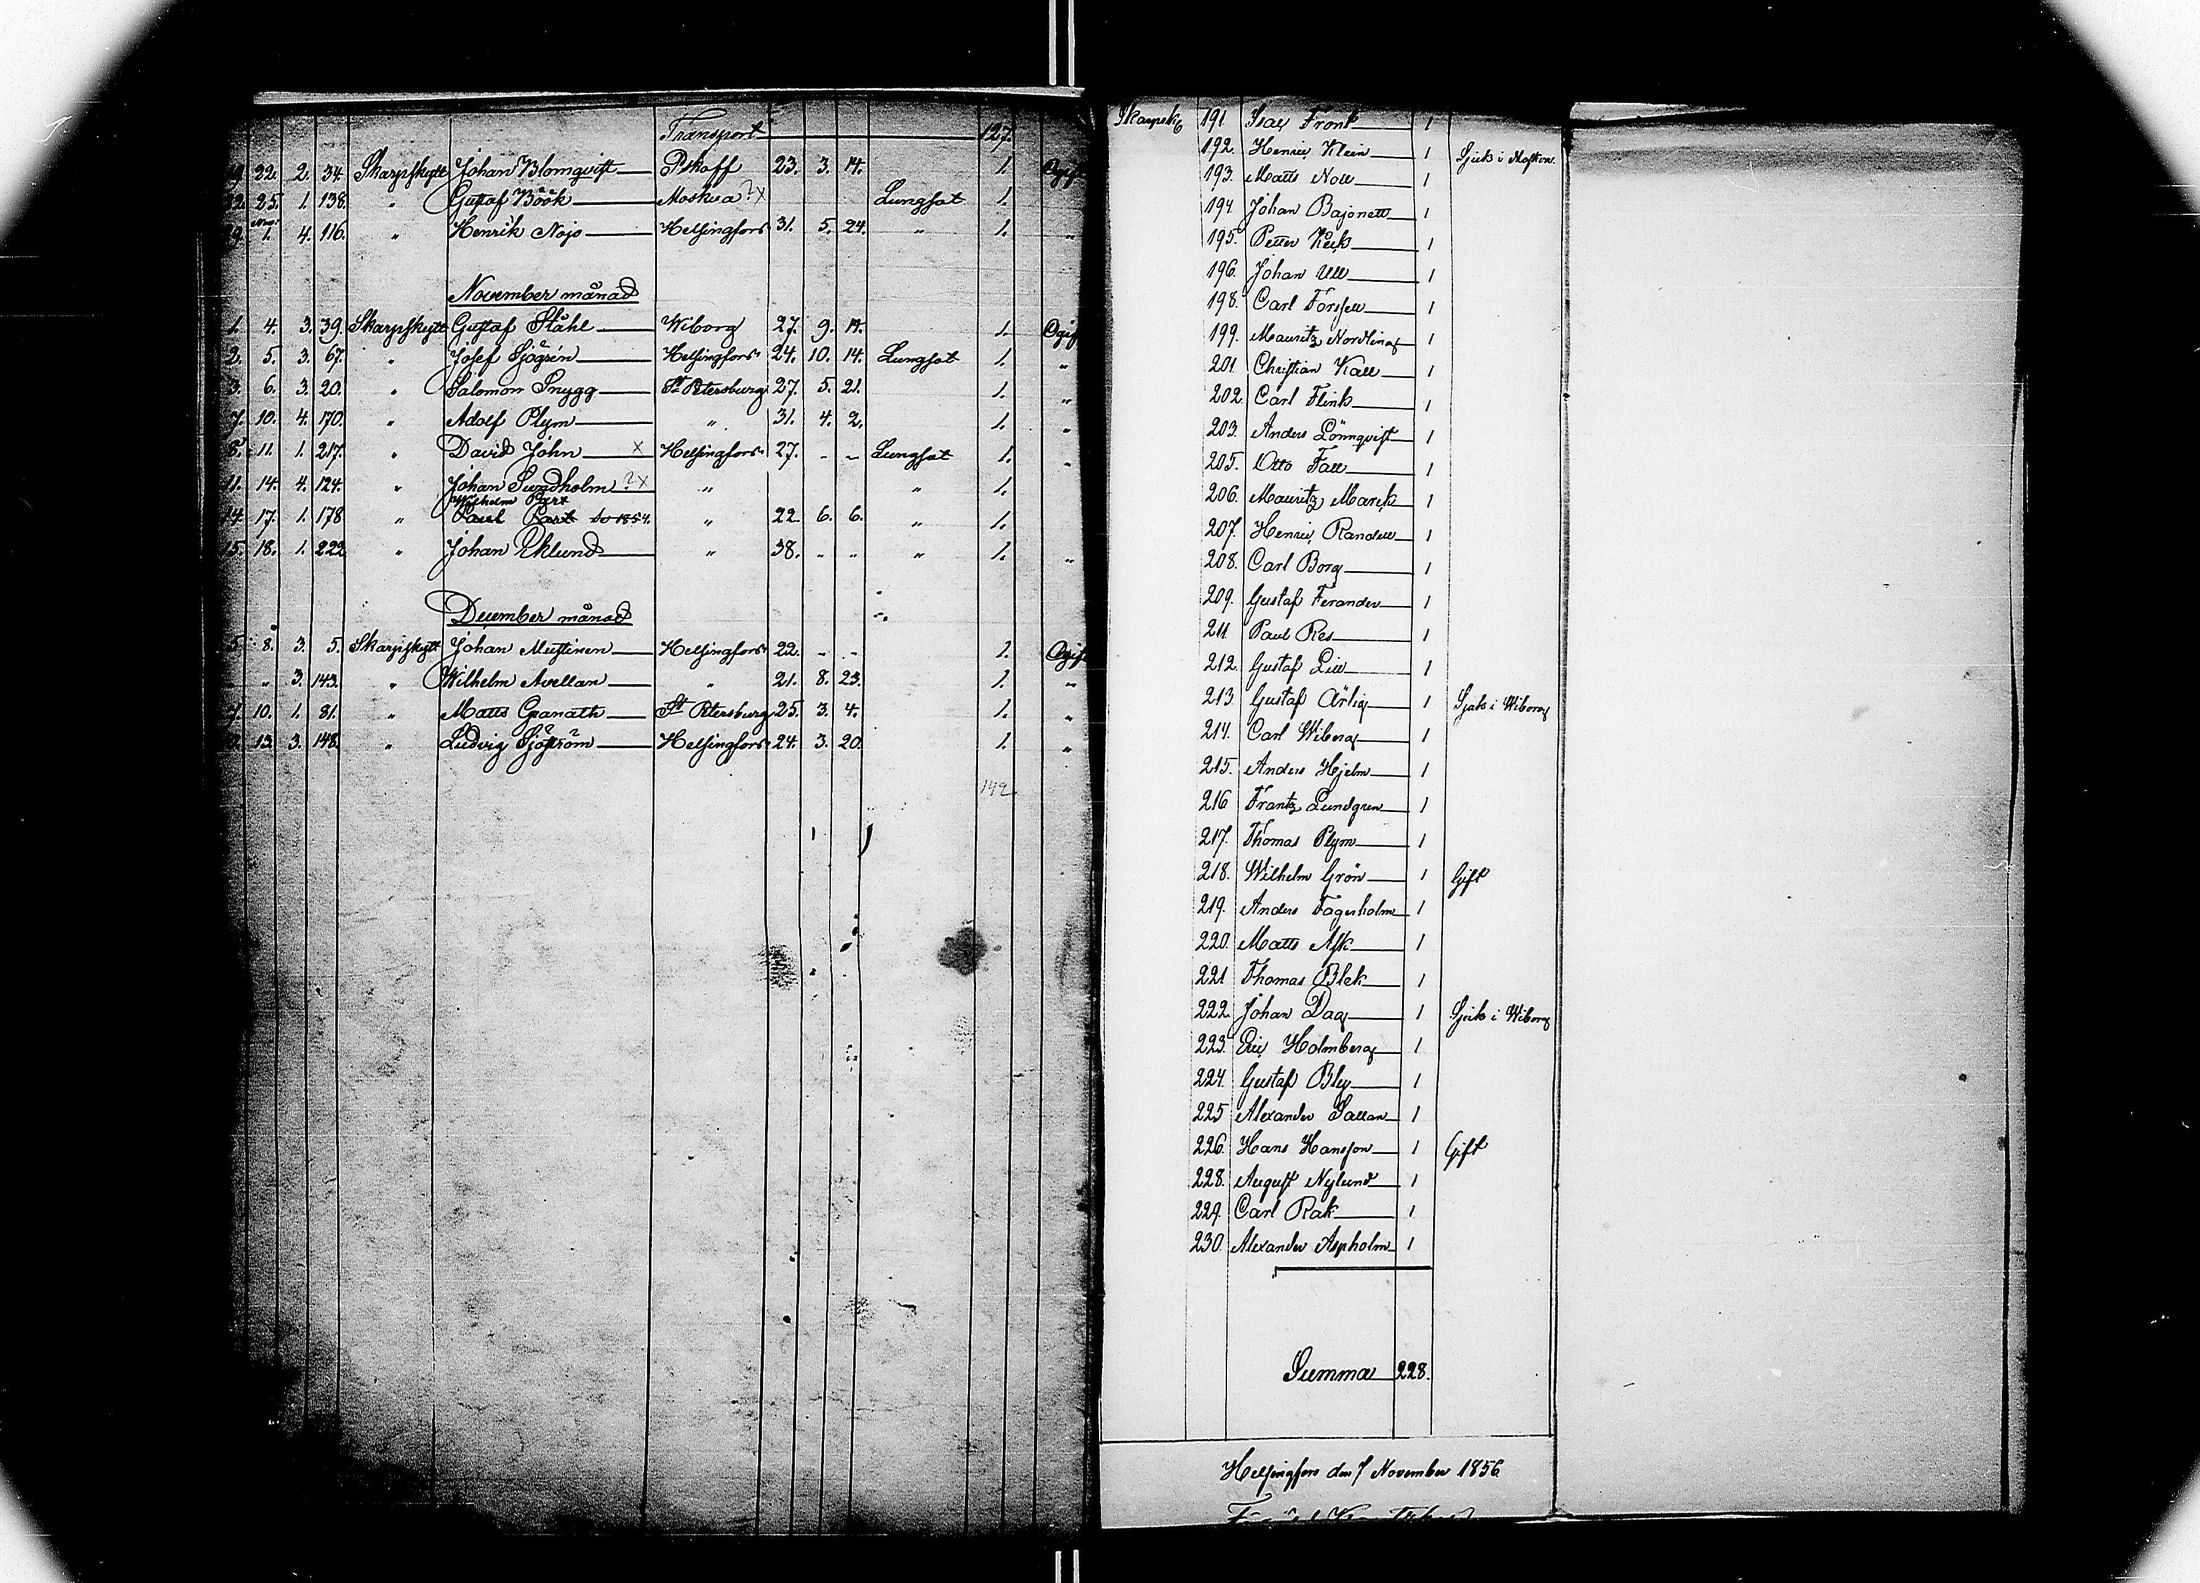 Transport 127.
19. 22. 2. 34. Skarpskytt Johan Blomqvist Pskoff 23. 3. 14. 1. Ogift
22. 25. 1. 138. " Gustaf Böök Moskwa ?x Lungsot 1.
29. 1. 4. 116. " Henrik Nojo Helsingfors 31. 5. 24. " 1. "
November månad
1. 4. 3. 39. Skarpskytt Gustaf Ståhl Wiborg 27. 9. 14. 1. Ogift
2. 5. 3. 67. " Josef Sjögrén Helsingfors 24. 10. 14. Lungsot 1. "
3. 6. 3. 20. " Salomon Snygg St Petersburg 27. 5. 21. 1. "
7. 10. 4. 170. " Adolf Plym " 31. 4. 2. 1. "
8. 11. 1. 217. " David John x Helsingfors 27. - - Lungsot 1. "
11. 14. 4. 124. " Johan Sundholm ?x " " 1.
Wilhelm Part
14. 17. 1. 178 " Paul Part 1854. " 22. 6. 6. " 1.
15. 18. 1. 222 " Johan Eklund " 38. " " " 1. "
December månad
5. 8. 3. 5. Skarpskytt Johan Mustinen Helsingfors 22. - - 1. Ogift
" " 3. 143. " Wilhelm Avellan " 21. 8. 23. 1. "
7. 10. 1. 81. " Matts Granath St Petersburg 25. 3. 4. 1. "
13. 3. 148. " Ludvig Sjöström Helsingfors 24. 3. 20. 1. "
142.
Skarpsk. 191. Isac Front 1
192. Henric Klein 1 Sjuk i Moskow
193. Matts Noll 1
194 Johan Bajonett 1
195. Petter Kück 1
196. Johan Ull 1
198. Carl Forssell 1
199. Mauritz Nordling 1
201 Christian Kall 1
202. Carl Flink 1
203. Anders Lönnqvist 1
205. Otto Fall 1
206. Mauritz Marck 1
207. Henric Randell 1
208. Carl Borg 1
209. Gustaf Ferander 1
211. Paul Res 1
212. Gustaf Lill 1
213. Gustaf Ärlig 1 Sjuk i Wiborg
214. Carl Wiberg 1
215. Anders Hjelm 1
216 Frantz Lundgren 1
217. Thomas Plym 1
218. Wilhelm Grön 1 Gift
219. Anders Fagerholm 1
220. Matts Ask 1
221 Thomas Blek 1
222. Johan Dag 1 Sjuk i Wiborg
223. Eric Holmberg 1
224. Gustaf Bly 1
225 Alexander Sallan 1
226. Hans Hansson 1 Gift
228. August Nylund 1
229. Carl Rak 1
230. Alexander Aspholm 1
Summa 228.
Helsingfors den 7 November 1856